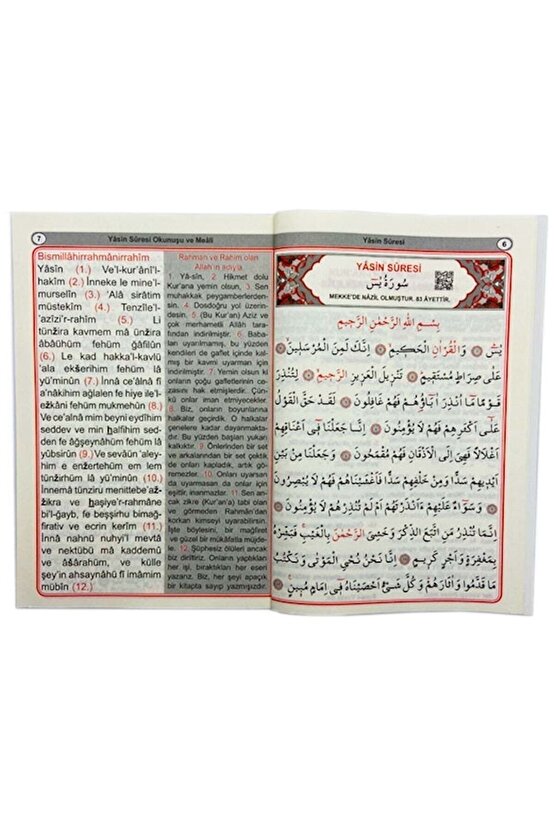 Yâsîn Sûresi
6
YÂSİN SÛRESİ
سُورَةُ يٰسٓ
MEKKE'DE NÂZİL OLMUŞTUR. 83 ÂYETTİR.
بِسْمِ اللّٰهِ الرَّحْمٰنِ الرَّح۪يمِ
يٰسٓ ۞ وَالْقُرْاٰنِ الْحَك۪يمِ ۞ اِنَّكَ لَمِنَ الْمُرْسَل۪ينَ ۞
عَلٰى صِرَاطٍ مُسْتَق۪يمٍ ۞ تَنْز۪يلَ الْعَز۪يزِ الرَّح۪يمِ ۞ لِتُنْذِرَ
قَوْمًا مَٓا اُنْذِرَ اٰبَٓاؤُ۬هُمْ فَهُمْ غَافِلُونَ ۞ لَقَدْ حَقَّ الْقَوْلُ
عَلٰٓى اَكْثَرِهِمْ فَهُمْ لَا يُؤْمِنُونَ ۞ اِنَّا جَعَلْنَا ف۪ٓي اَعْنَاقِهِمْ
اَغْلَالًا فَهِيَ اِلَى الْاَذْقَانِ فَهُمْ مُقْمَحُونَ ۞ وَجَعَلْنَا مِنْ بَيْنِ
اَيْد۪يهِمْ سَدًّا وَمِنْ خَلْفِهِمْ سَدًّا فَاَغْشَيْنَاهُمْ فَهُمْ لَا يُبْصِرُونَ
۞ وَسَوَٓاءٌ عَلَيْهِمْ ءَاَنْذَرْتَهُمْ اَمْ لَمْ تُنْذِرْهُمْ لَا يُؤْمِنُونَ ۞
اِنَّمَا تُنْذِرُ مَنِ اتَّبَعَ الذِّكْرَ وَخَشِيَ الرَّحْمٰنَ بِالْغَيْبِۚ فَبَشِّرْهُ
بِمَغْفِرَةٍ وَاَجْرٍ كَر۪يمٍ ۞ اِنَّا نَحْنُ نُحْيِ الْمَوْتٰى وَنَكْتُبُ
مَا قَدَّمُوا وَاٰثَارَهُمْۜ وَكُلَّ شَيْءٍ اَحْصَيْنَاهُ ف۪ٓي اِمَامٍ مُب۪ينٍ۟
7
Yâsin Sûresi Okunuşu ve Meâli
Bismillâhirrahmânirrahîm
Yâsîn (1.) Ve'l-kur'âni'l-
hakîm (2.) İnneke le mine'l-
murselîn (3.) 'Alâ sirâtim
müstekîm (4.) Tenzîle'l-
'azîzi'r-rahîm (5.) Li
tünżira kavmem mâ ünżira
âbâühum fehüm gâfilûn
(6.) Le kad hakka'l-kavlü
'ala ekšerihim fehüm lâ
yü'minûn (7.) İnnâ ce'alnâ fî
a'nâkihim aġlalen fe hiye ile'l-
eżkâni fehüm mukmehûn (8.)
Ve ce'alnâ mim beyni eydîhim
seddev ve min halfihim sed-
den fe âğşeynâhum fehüm lâ
yübsirûn (9.) Ve sevâün 'aley-
him e enżertehüm em lem
tünżirhüm lâ yü'minûn (10.)
İnnemâ tünziru menittebe'aż-
żikra ve haşiye'r-rahmâne
bi'l-ġayb, fe beşşirhu bimağ-
firativ ve ecrin kerîm (11.)
İnnâ nahnü nuhyi'l mevtâ
ve nektübü mâ kaddemû
ve âšârahüm, ve külle
şey'in ahsaynâhü fî imâmim
mübîn (12.)
Rahman ve Rahim olan
Allah'ın adıyla.
1. Yâ-sîn, 2. Hikmet dolu
Kur'ana yemin olsun, 3. Sen
muhakkak peygamberlerden-
sin. 4. Dosdoğru yol üzerin-
desin. 5. (Bu Kur'an) Aziz ve
çok merhametli Allâh tara-
fından indirilmiştir. 6. Baba-
ları uyarılmamış, bu yüzden
kendileri de gaflet içinde kal-
mış bir kavmi uyarman için
indirilmiştir. 7. Yemin olsun ki
onların çoğu gafletlerinin ce-
zasını hak etmişlerdir. Çün-
kü onlar iman etmiyecekler.
8. Biz, onların boyunlarına
halkalar geçirdik. O halkalar
çenelere kadar dayanmakta-
dır. Bu yüzden başları yukarı
kalkıktır. 9. Önlerinden bir set
ve arkalarından bir set çektik,
de onları kapladık, artık gö-
remezler. 10. Onları uyarsan
da uyarmasan da onlar için
eşittir, inanmazlar. 11. Sen an-
cak zikre (Kur'an'a) tabi olan
ve görmeden Rahmân'dan
korkan kimseyi uyarabilirsin.
İşte böylesini, bir mağfiret
ve güzel bir mükâfatla müjde-
le. 12. Şüphesiz ölüleri ancak
biz diriltiriz. Onların yaptıkları
her işi, bıraktıkları her eseri
yazarız. Biz, her şeyi apaçık
bir kitapta sayıp yazmışızdır.